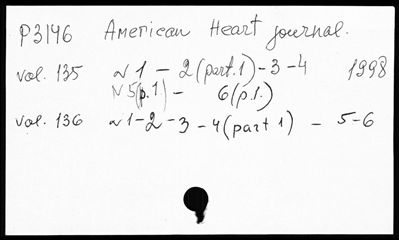 P3146 American Heart journal.
vol. 135 N 1 – 2 (part. 1) – 3 – 4 1998
N 5 (p. 1) – 6 (p. 1.)
vol. 136 N 1 – 2 – 3 – 4 (part 1) – 5 – 6